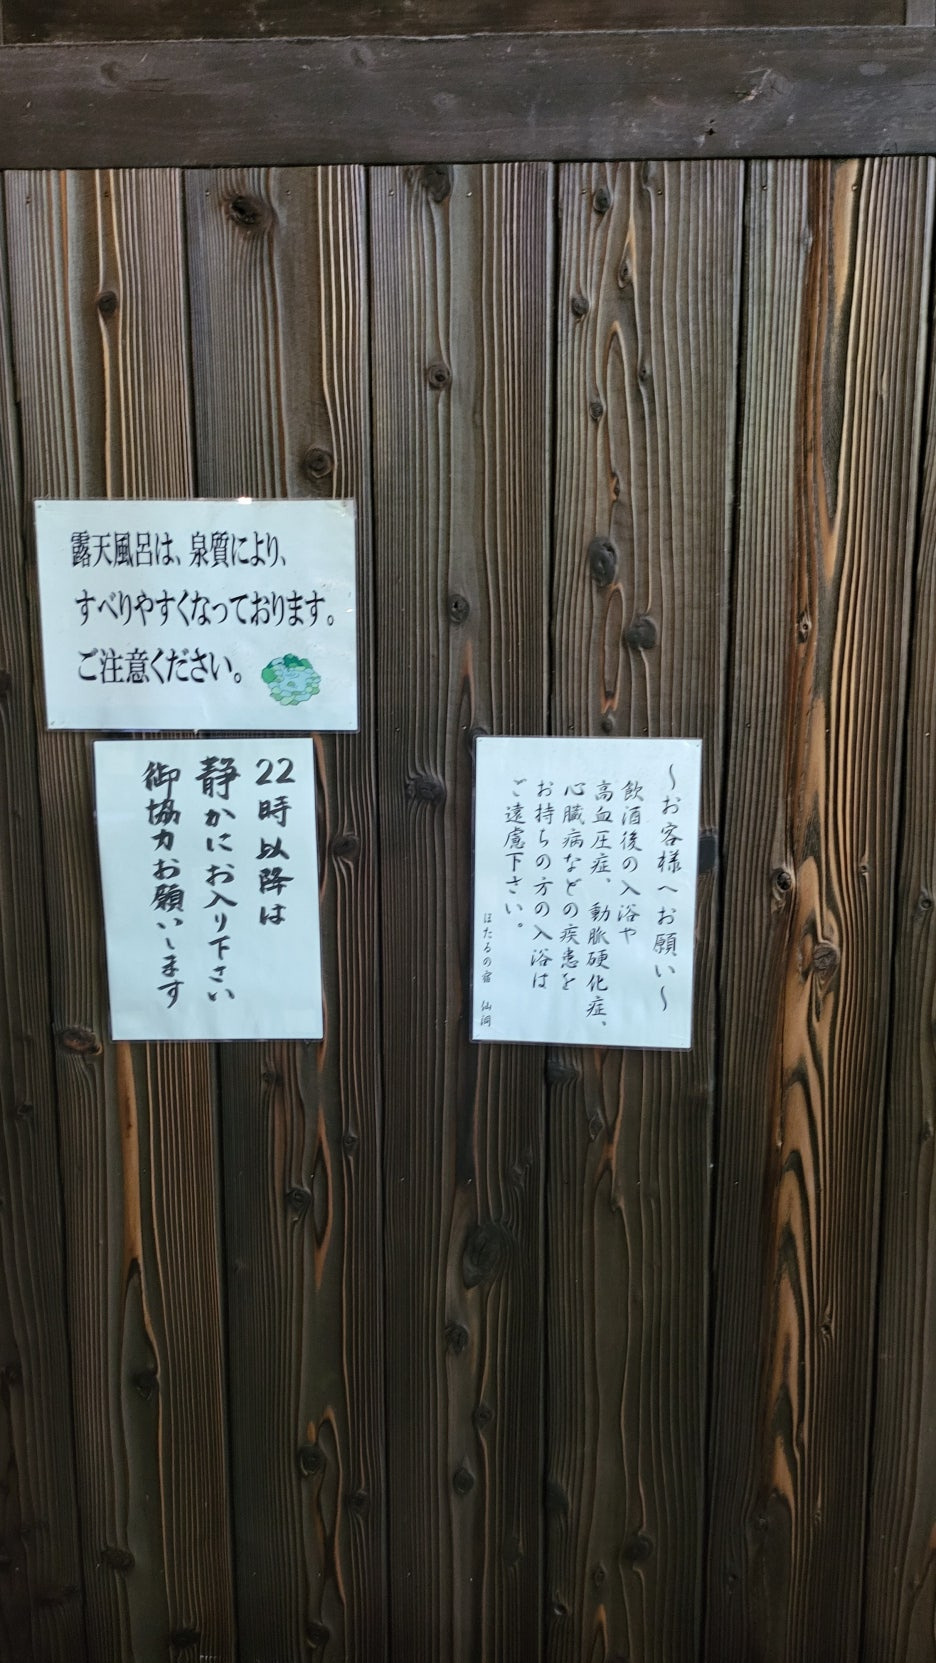 露天風呂は、泉質により、
すべりやすくなっております。
ご注意ください。
22時以降は
静かにお入り下さい
御協力お願いします
～お客様へお願い～
飲酒後の入浴や
高血圧症、動脈硬化症、
心臓病などの疾患を
お持ちの方の入浴は
ご遠慮下さい。
ほたるの宿 仙洞